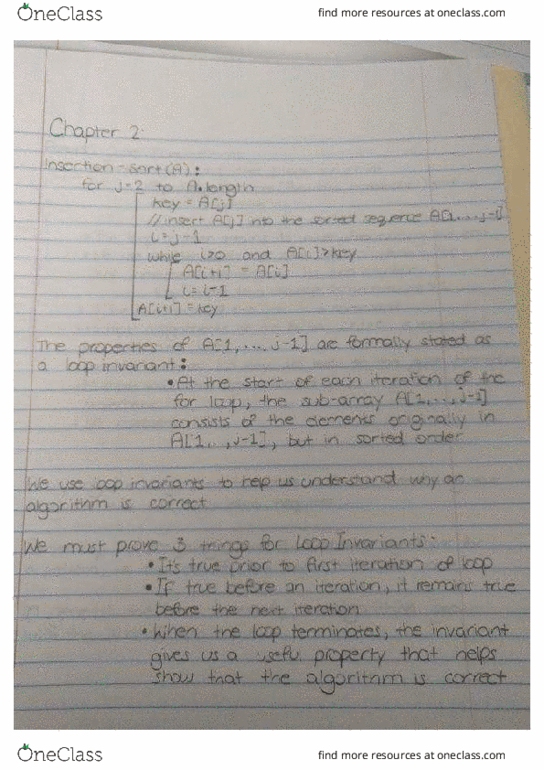 OneClass
find more resources at oneclass.com
Chapter 2
Insertion-sort(A):
for j=2 to A.length
key = A[j]
//insert A[j] into the sorted sequence A[1,...,j-1]
i=j-1
while i>0 and A[i]>key
A[i+1] = A[i]
i=i-1
A[i+1]=key
The properties of A[1,... j-1] are formally stated as
a loop invariant:
•At the start of each iteration of the
for loop, the sub-array A[1,..,j-1]
consists of the elements originally in
A[1..,j-1], but in sorted order
We use loop invariants to help us understand why an
algorithm is correct
We must prove 3 things for Loop Invariants:
•It's true prior to first iteration of loop
•If true before an iteration, it remains true
before the next iteration
•When the loop terminates, the invariant
gives us a useful property that helps
show that the algorithm is correct
OneClass
find more resources at oneclass.com